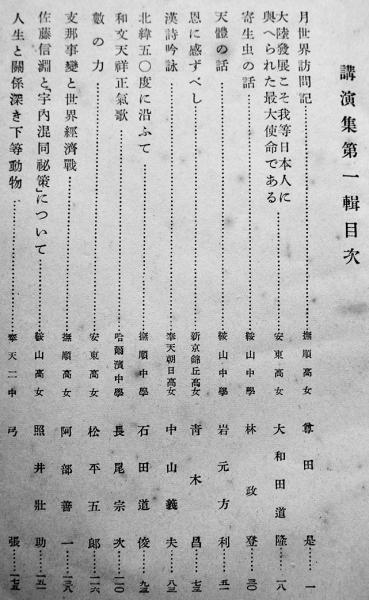 講演集第一輯目次
月世界訪問記……撫順高女 尊田 是……一
大陸發展こそ我等日本人に
與へられた最大使命である……安東高女 大和田道隆……一八
寄生虫の話……鞍山中學 林 政登……三〇
天體の話……鞍山中學 岩元方利……五一
恩に感ずべし……新京錦丘高女 靑木 昌……七三
漢詩吟詠……奉天朝日高女 中山義夫……八三
北緯五〇度に沿ふて……撫順中學 石田道俊……九三
和文天祥正氣歌……哈爾濱中學 長尾宗次……一一〇
數の力……安東高女 松平五郎……一一六
支那事變と世界經濟戰……撫順高女 阿部善一……一三八
佐藤信淵と「宇內混同祕策」について……鞍山高女 照井壯助……一五一
人生と關係深き下等動物……奉天二中 弓 張……一七五